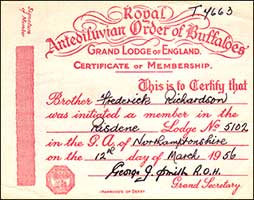 Royal I 4663
Antediluvian Order of Buffaloes
GRAND LODGE OF ENGLAND.
CERTIFICATE OF MEMBERSHIP.
Signature
of Member
This is to Certify that
Brother Frederick Richardson
was initiated a member in the
Risdene Lodge No 5102
in the P.A. of Northamptonshire
on the 12th day of March 1956
George J. Smith R.O.H.
Grand Secretary.
HARWOODS OF DERBY